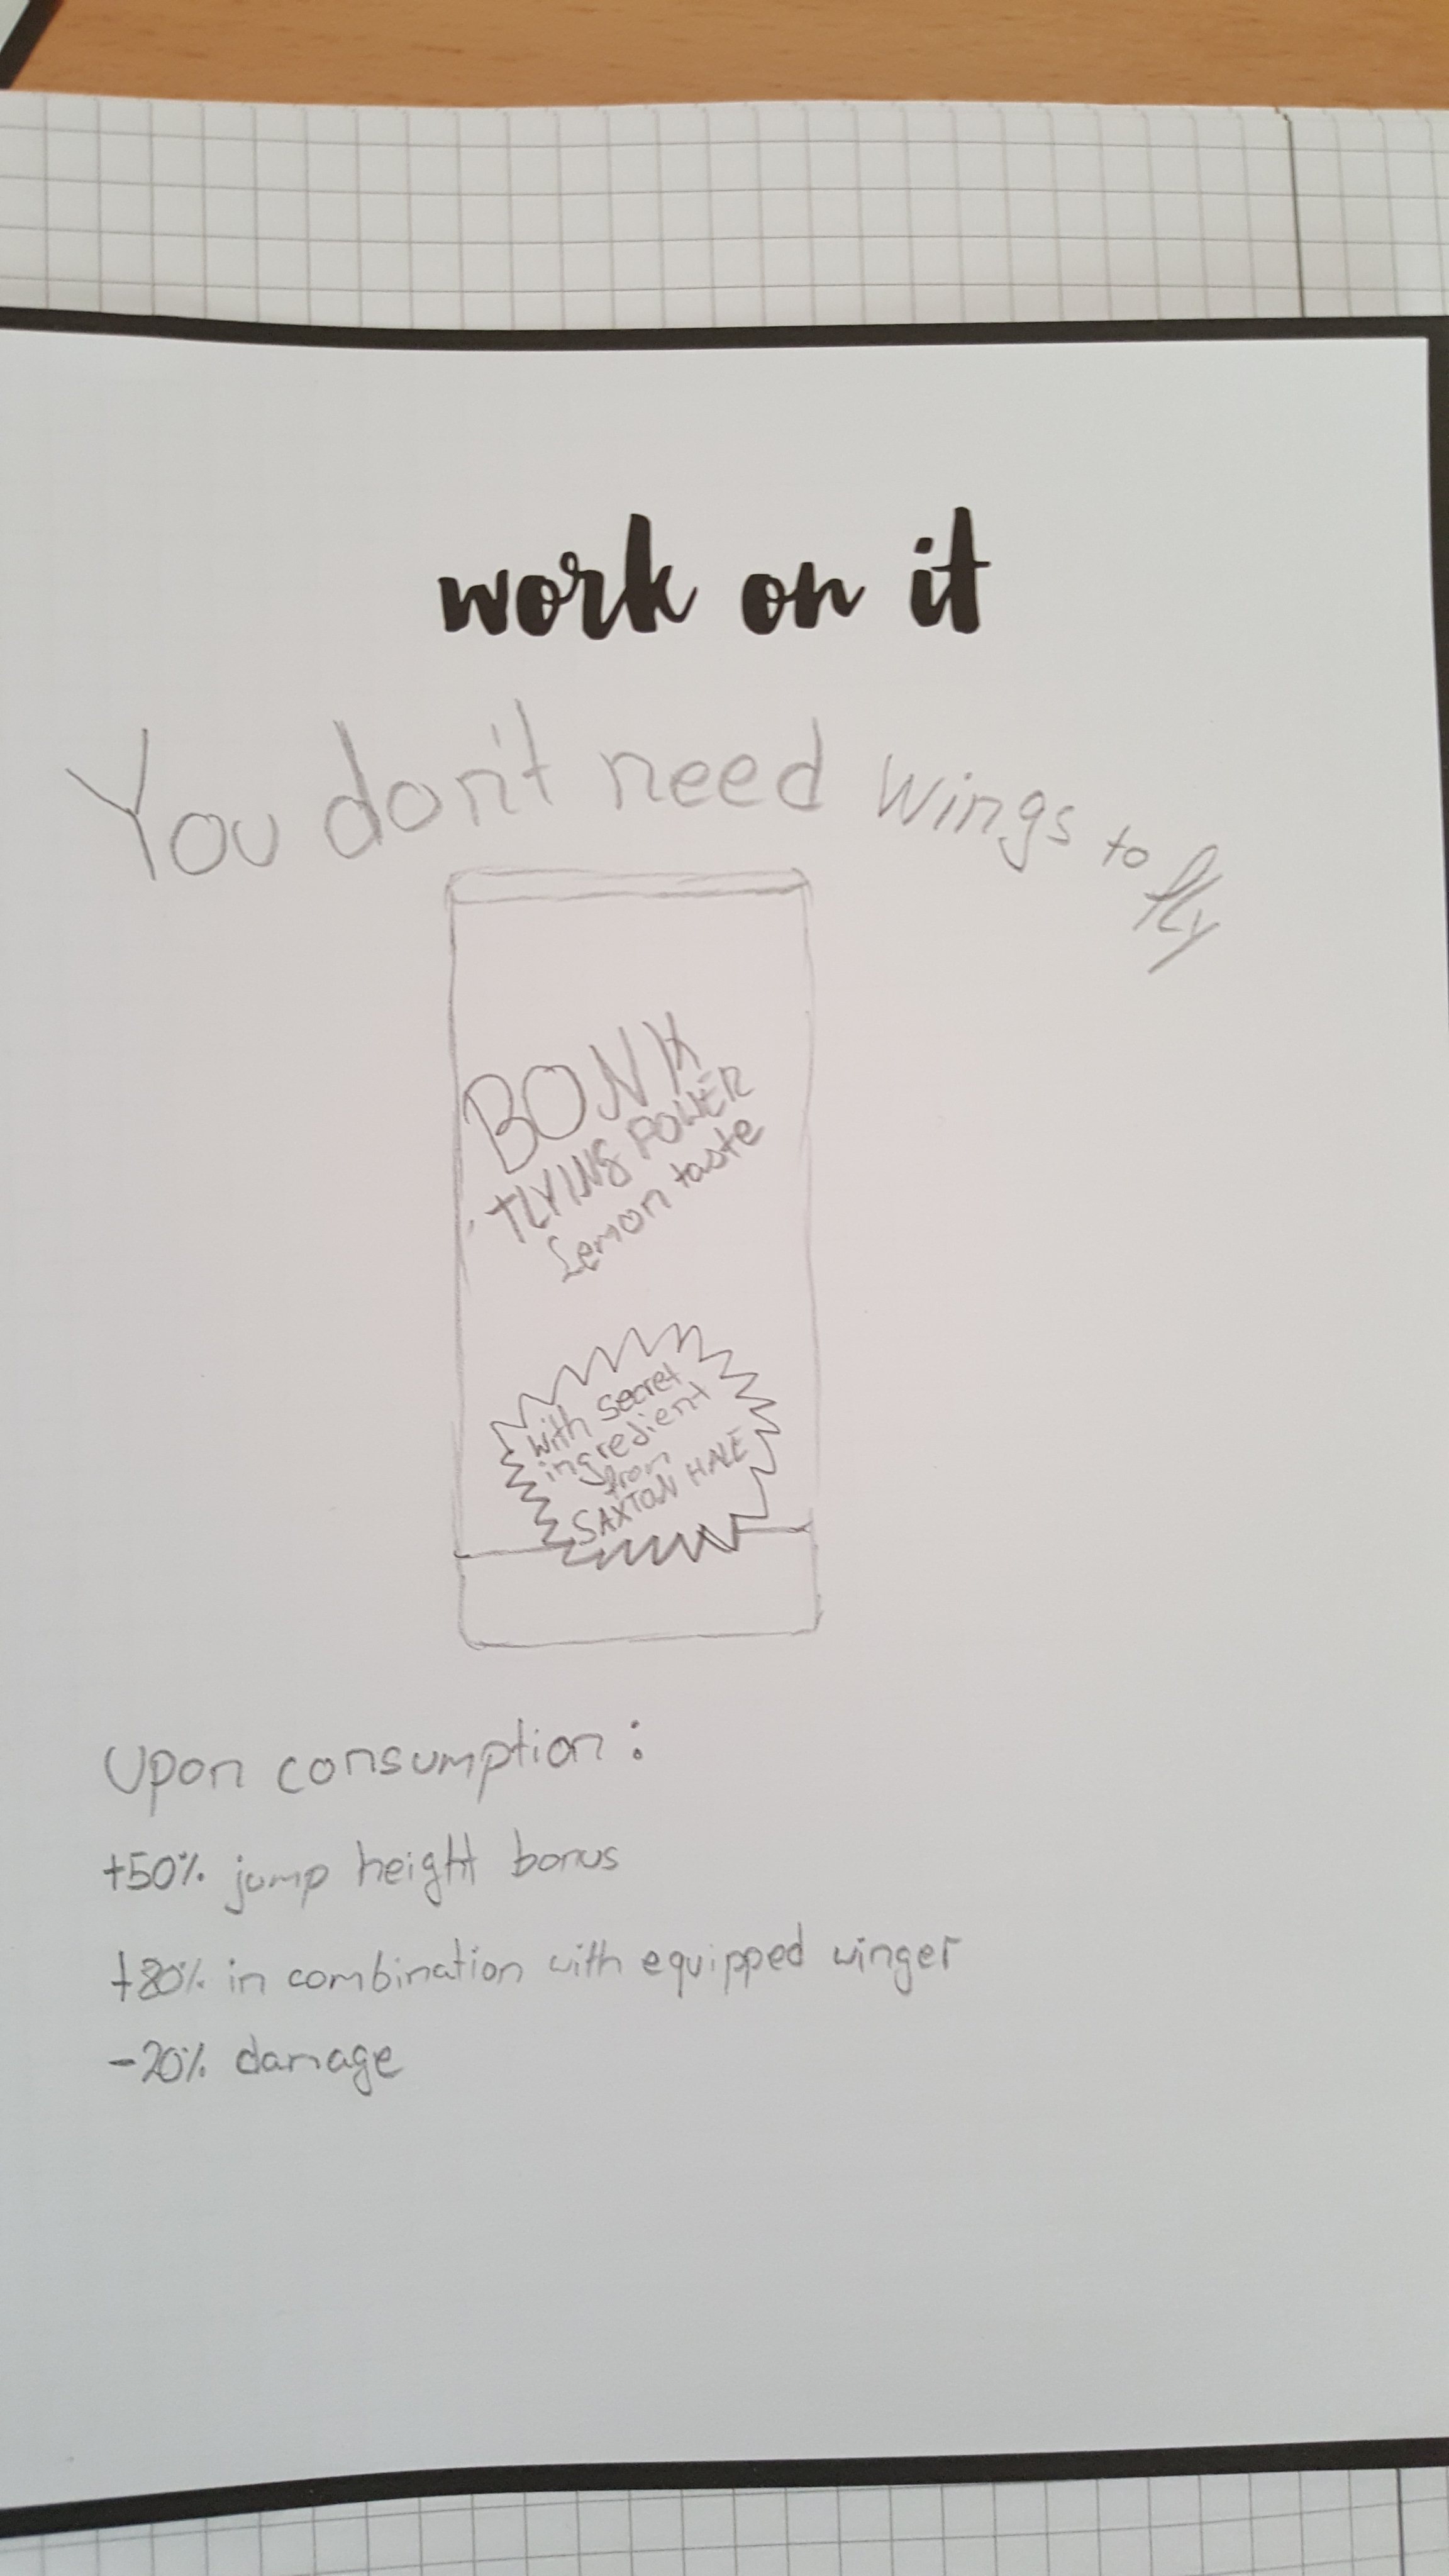 work on it
You don't need wings to fly
BONK
FLYING POWER
Lemon taste
With secret
ingredient
from
SAXTON HALE
Upon consumption:
+50% jump height bonus
+80% in combination with equipped winger
-20% damage